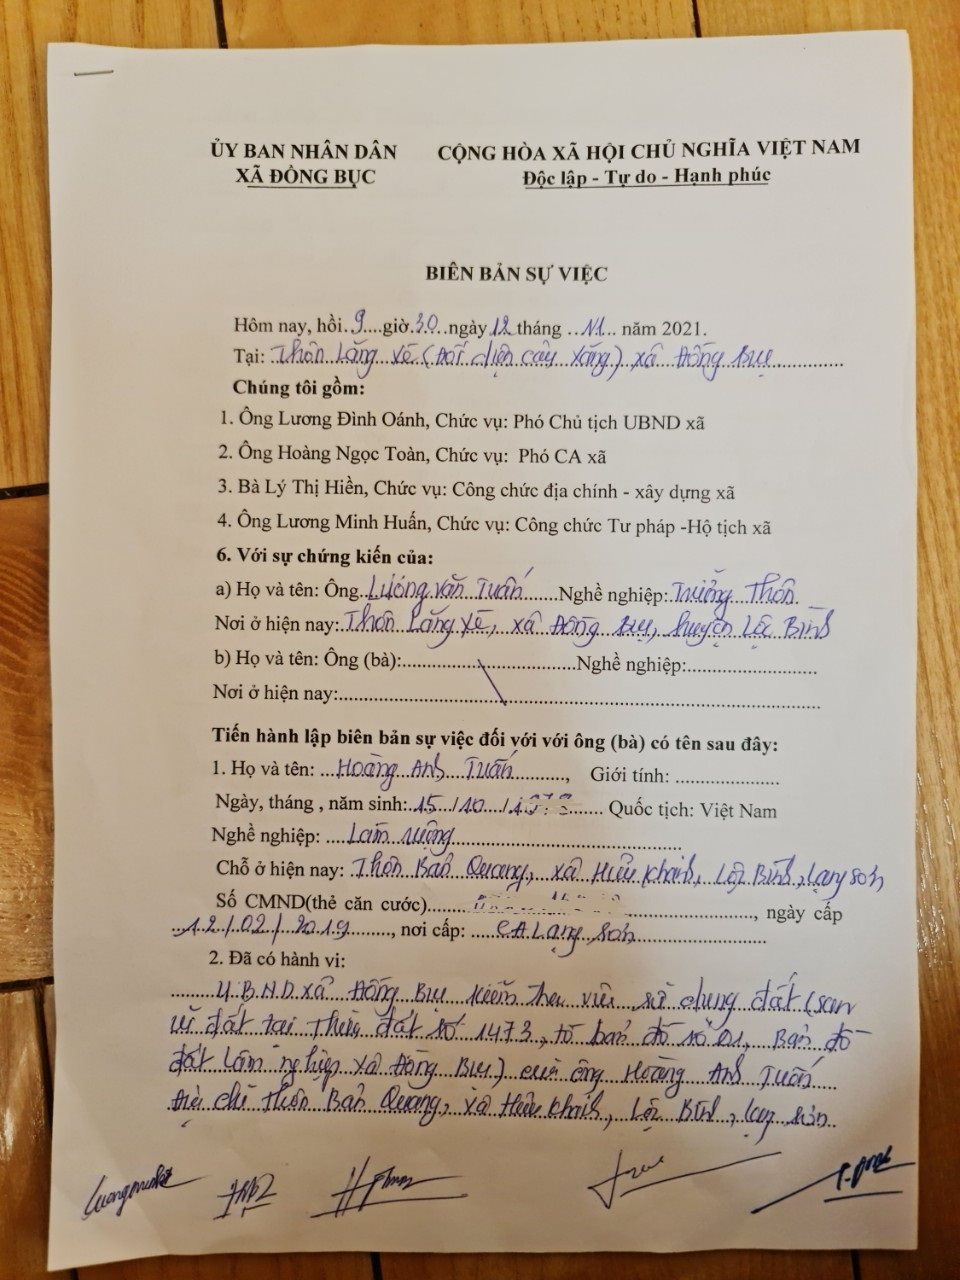 ỦY BAN NHÂN DÂN
XÃ ĐỒNG BỤC
CỘNG HÒA XÃ HỘI CHỦ NGHĨA VIỆT NAM
Độc lập - Tự do - Hạnh phúc
BIÊN BẢN SỰ VIỆC
Hôm nay, hồi 9 giờ 30 ngày 12 tháng 11 năm 2021.
Tại: Thôn Lăng Xè (Đối diện cây xăng) xã Đồng Bục
Chúng tôi gồm:
1. Ông Lương Đình Oánh, Chức vụ: Phó Chủ tịch UBND xã
2. Ông Hoàng Ngọc Toàn, Chức vụ: Phó CA xã
3. Bà Lý Thị Hiền, Chức vụ: Công chức địa chính - xây dựng xã
4. Ông Lương Minh Huấn, Chức vụ: Công chức Tư pháp -Hộ tịch xã
6. Với sự chứng kiến của:
a) Họ và tên: Ông Lương Văn Tuấn Nghề nghiệp: Trưởng Thôn
Nơi ở hiện nay: Thôn Lăng Xè, xã Đồng Bục, huyện Lộc Bình
b) Họ và tên: Ông (bà): Nghề nghiệp:
Nơi ở hiện nay:
Tiến hành lập biên bản sự việc đối với với ông (bà) có tên sau đây:
1. Họ và tên: Hoàng Anh Tuấn, Giới tính:
Ngày, tháng , năm sinh: 15/10/ Quốc tịch: Việt Nam
Nghề nghiệp: Làm ruộng
Chỗ ở hiện nay: Thôn Bản Quang, xã Hữu Khánh, Lộc Bình, Lạng Sơn
Số CMND(thẻ căn cước), ngày cấp
12/02/2019, nơi cấp: CA Lạng Sơn
2. Đã có hành vi:
U.B.N.D xã Đồng Bục kiểm tra việc sử dụng đất (san
ủi đất tại Thửa đất số 1473, tờ bản đồ số 01, Bản đồ
đất lâm nghiệp xã Đồng Bục) của ông Hoàng Anh Tuấn
Địa chỉ Thôn Bản Quang, xã Hữu Khánh, Lộc Bình, Lạng Sơn